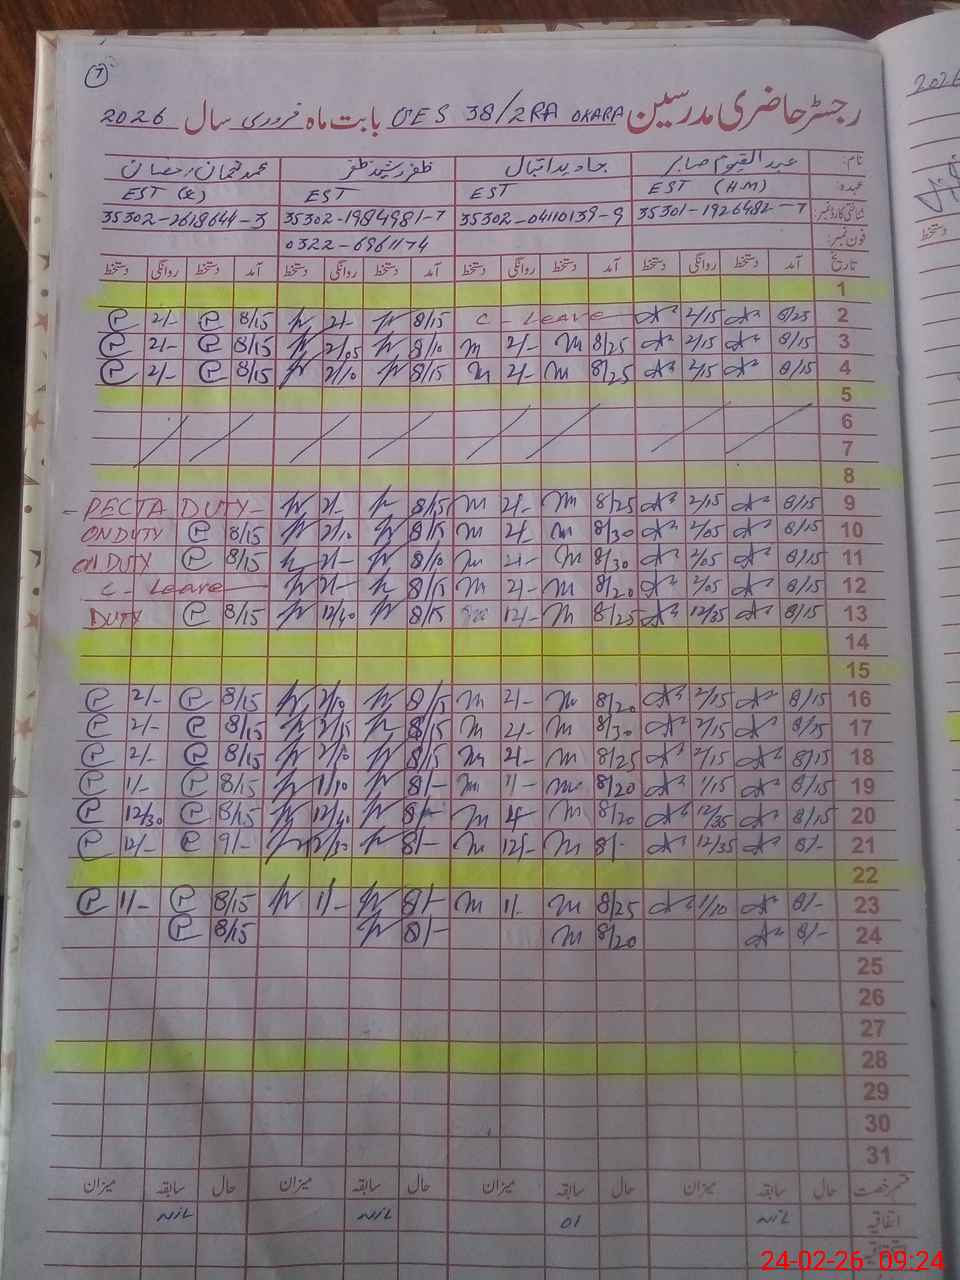 7
رجسٹر حاضری مدرسین GES 38/2RA OKARA بابت ماہ فروری سال 2026
نام: عبدالقیوم صابر جاوید اقبال ظفر رشید ظفر محمد نعمان رمضان
عہدہ: EST (H.M) EST EST EST (S)
شناختی کارڈ نمبر: 35301-1926482-7 35302-0411039-9 35302-1984981-7 35302-2618644-3
فون نمبر: 0322-6961174
تاریخ آمد دستخط روانگی دستخط آمد دستخط روانگی دستخط آمد دستخط روانگی دستخط آمد دستخط روانگی دستخط
1
2 8/25 2/15 C - Leave 8/15 2/- 8/15 P 2/- P
3 8/15 2/15 8/25 m 2/- m 8/10 2/05 8/15 P 2/- P
4 8/15 2/15 8/25 m 2/- m 8/15 2/10 8/15 P 2/- P
5
6
7
8
9 8/15 2/15 8/25 m 2/- m 8/15 2/- PECTA DUTY
10 8/15 2/05 8/30 m 2/- m 8/15 2/10 8/15 P ON DUTY
11 8/15 2/05 8/30 m 2/- m 8/10 2/- 8/15 P ON DUTY
12 8/15 2/05 8/20 m 2/- m 8/15 2/- C - Leave
13 8/15 12/35 8/25 m 12/- 8/15 12/40 8/15 P DUTY
14
15
16 8/15 2/15 8/20 m 2/- m 8/15 2/10 8/15 P 2/- P
17 8/15 2/15 8/30 m 2/- m 8/15 2/15 8/15 P 2/- P
18 8/15 2/15 8/25 m 2/- m 8/15 2/10 8/15 P 2/- P
19 8/15 1/15 8/20 m 1/- m 8/- 1/10 8/15 P 1/- P
20 8/15 12/35 8/20 m m 8/- 12/40 8/15 P 12/30 P
21 8/- 12/35 8/- m 12/- m 8/- 12/30 9/- P 12/- P
22
23 8/- 1/10 8/25 m 1/- m 8/- 1/- 8/15 P 1/- P
24 8/- 8/20 m 8/- 8/15 P
25
26
27
28
29
30
31
قسم رخصت حال سابقہ میزان حال سابقہ میزان حال سابقہ میزان حال سابقہ میزان
اتفاقیہ NIL 01 NIL NIL
2026
دستخط
24-02-26 09:24